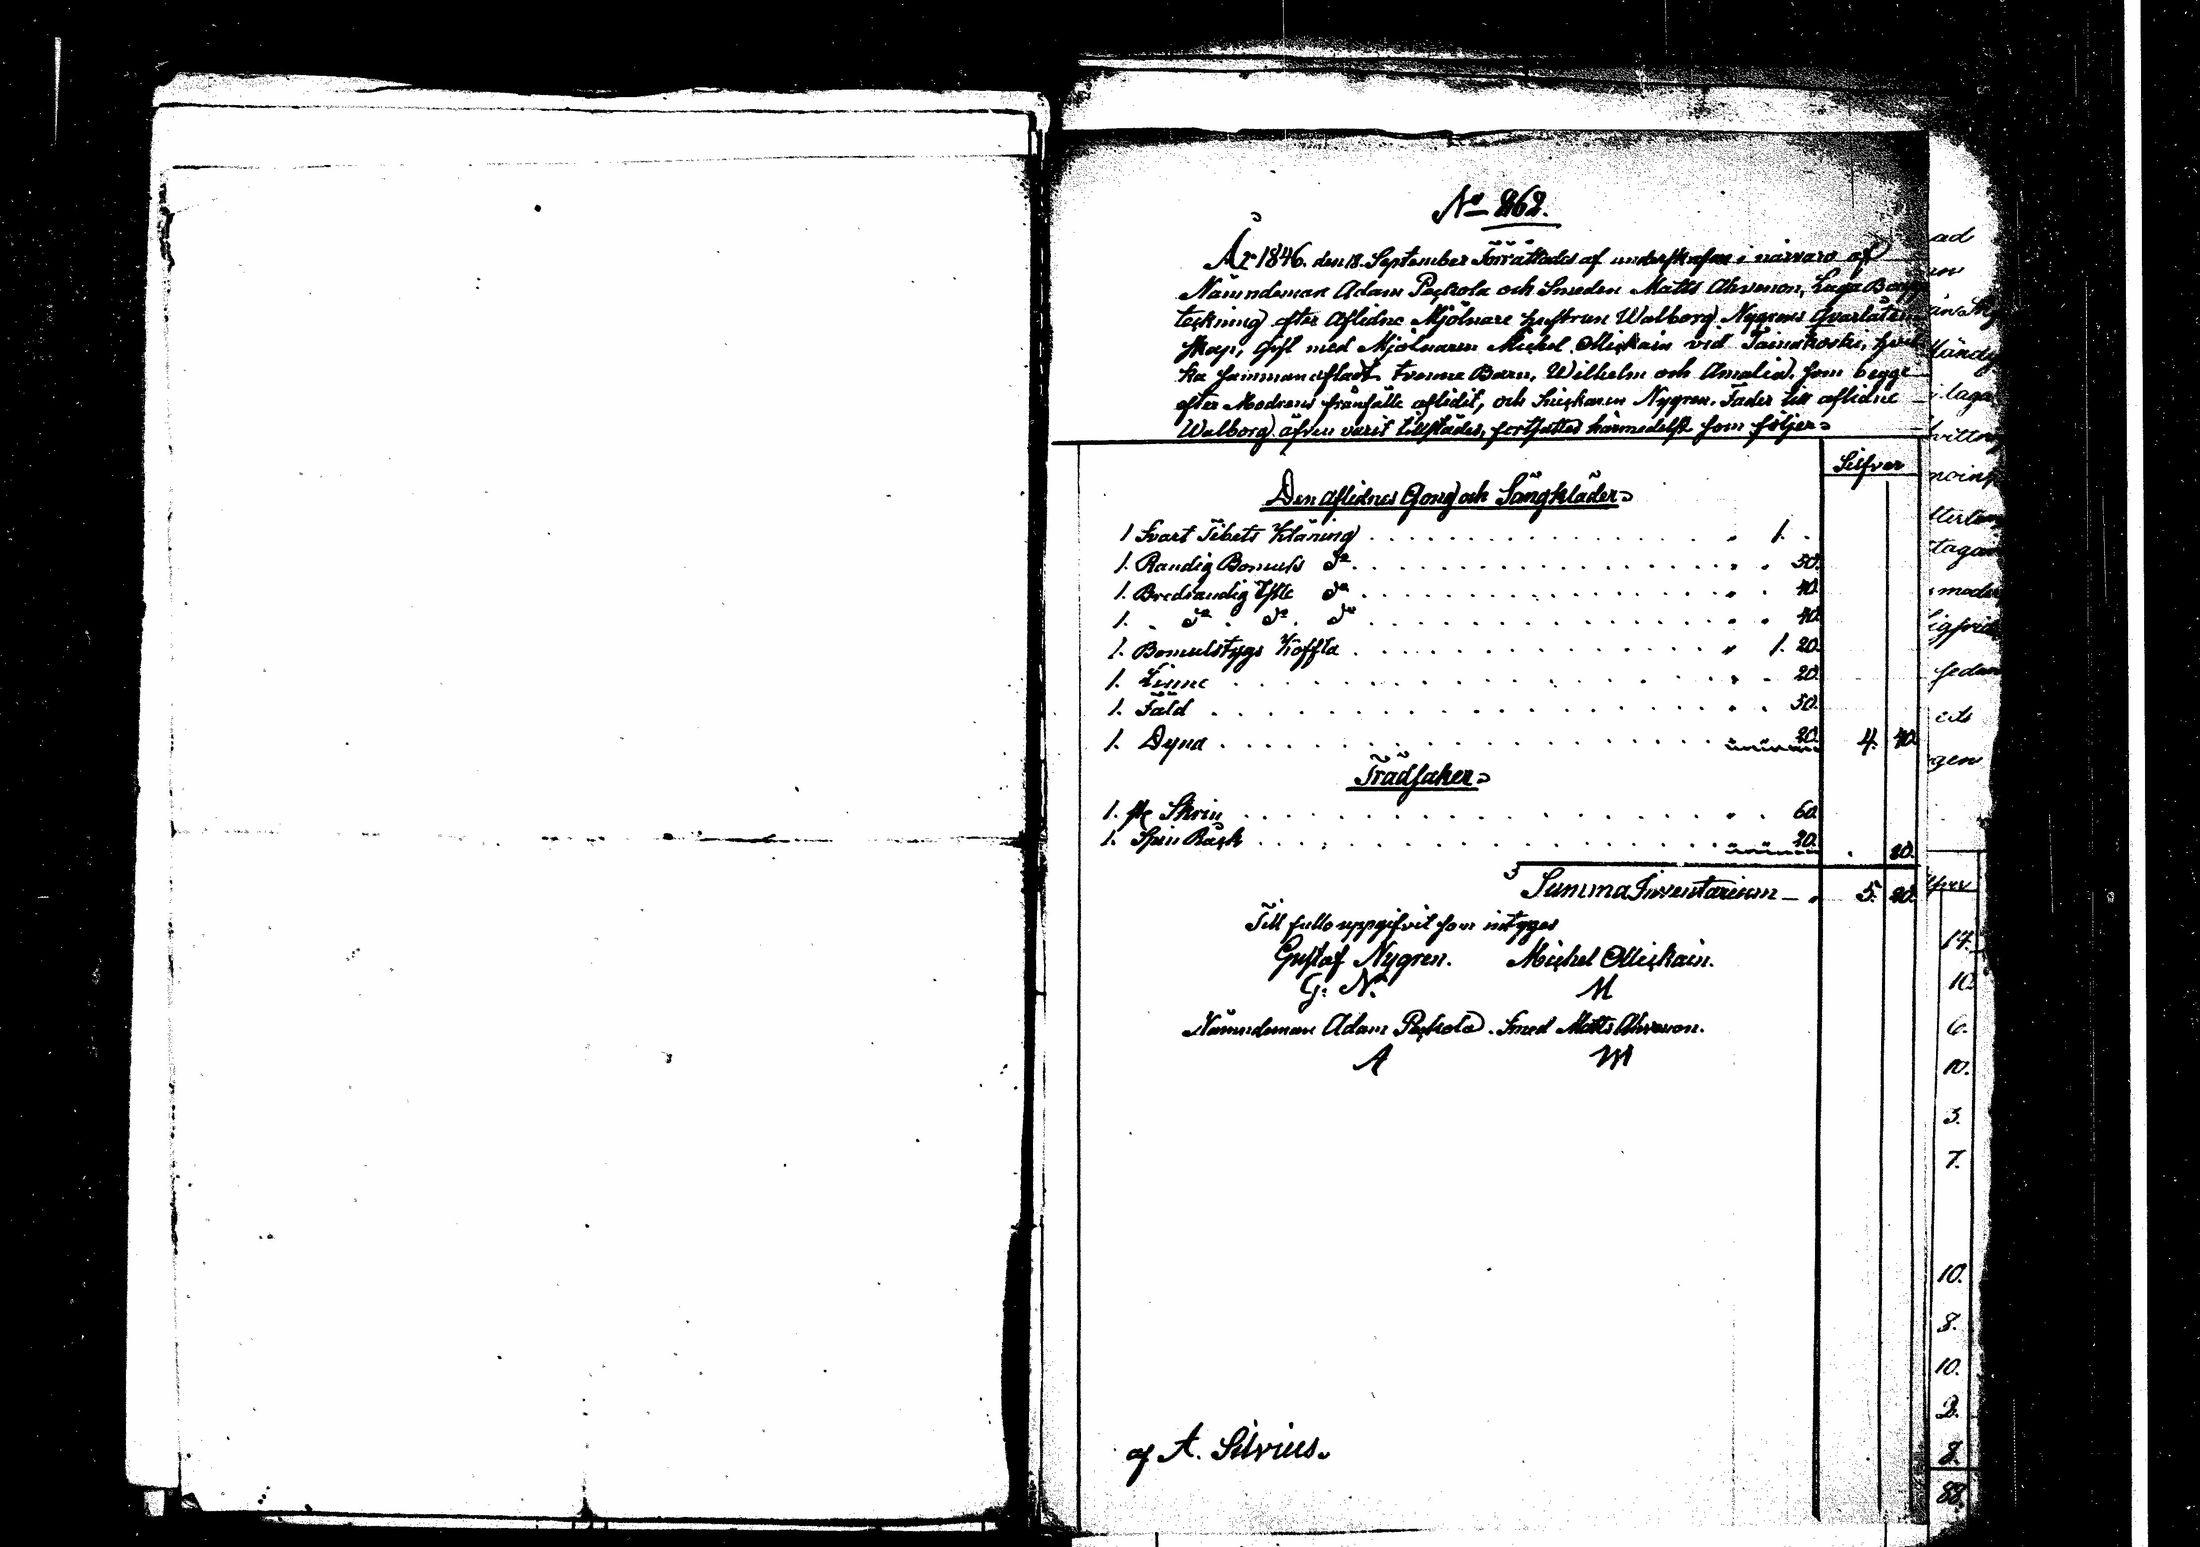 No 262.
År 1846. den 18. September Förrättades af underskrefne i närvaro af
Nämndeman Adam Peckola och Smeden Matts Ahvenon, Laga Boupp
teckning efter Aflidne Mjölnare hustrun Walborg Nygrens Qvarlåten
skap, Gift med Mjölnaren Michel Ollickain vid Tainakoski, hvil
ka sammanafladt tvenne Barn, Wilhelm och Amalia. som begge
efter Modrens frånfälle aflidit, och Snickaren Nygren. Fader till aflidne
Walborg äfven varit tillstädes, fortsattes härmedelst som följer
Silfver
Den aflidnes Gong och Sängkläder
1 Svart Tibets Kläning 1. .
1. Randig Bomuls do 50.
1. Bredrandig do 40.
1. do do do 40.
1. Bomulstygs Köffta 1. 20.
1. Linne 20.
1. Fäld 50.
1. Dyna 20. 4. 40.
Trädsaker
1. st Skrin 60.
1. Spin Råck 20. 80.
Summa Inventarium 5. 20.
Till fullo uppgifvit som intyges
Gustaf Nygren. Michel Ollickain.
G. N. M
Nämndeman Adam Peckola. Smed Matts Ahvenon.
A M
af A. Silvius.
ad
laga
moder
sedan
gen
17.
10.
6.
10.
3.
7.
10.
8.
10.
2.
8.
88.